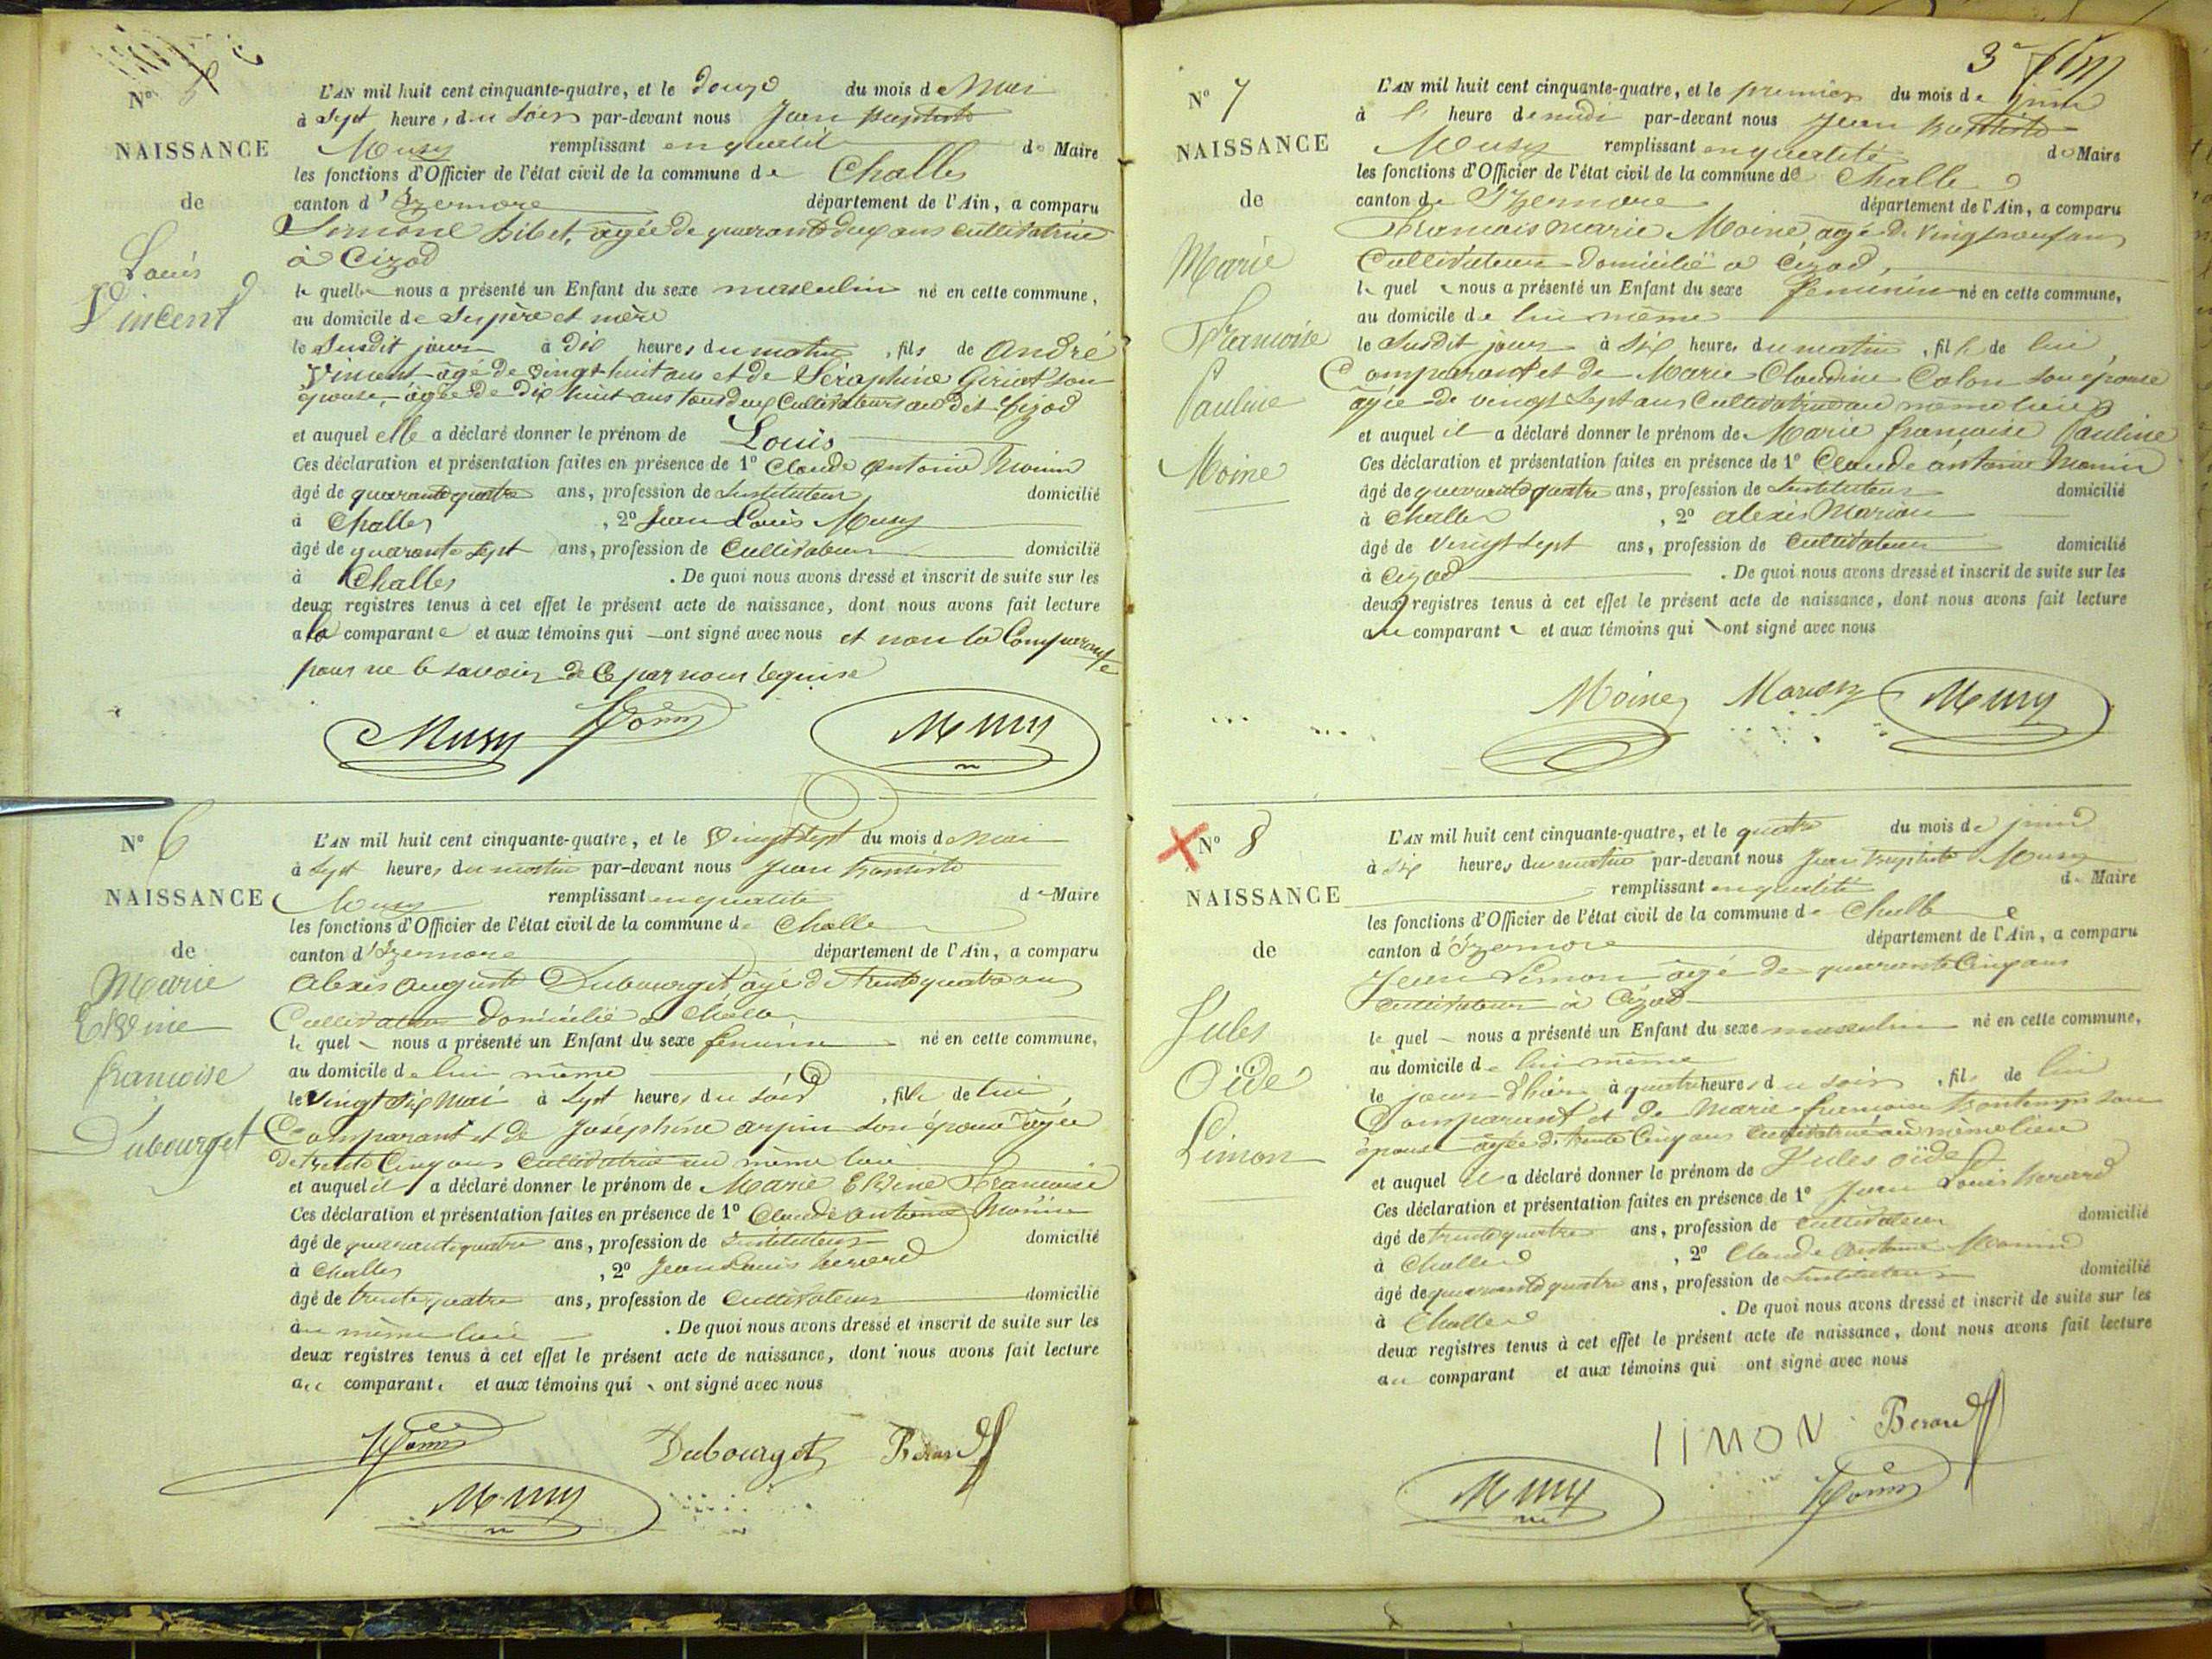 N° 5
NAISSANCE
de
Louis
Vincent
L'AN mil huit cent cinquante-quatre, et le douze du mois de Mai
à Sept heures du Soir par-devant nous Jean Baptiste
Musy remplissant en qualité de Maire
les fonctions d'Officier de l'état civil de la commune de Challes
canton d'Izernore département de l'Ain, a comparu
Bibet, âgée de quarante deux ans cultivatrice
à Cizod
la quelle nous a présenté un Enfant du sexe masculin né en cette commune,
au domicile de Ses père et mère
le Susdit jour à dix heures du matin, fils de André
Vincent âgé de vingt huit ans et de Séraphine Giriat son
épouse, âgée de dix huit ans tous deux Cultivateurs au dit Cizod
et auquel elle a déclaré donner le prénom de Louis
Ces déclaration et présentation faites en présence de 1° Claude Antoine Monin
âgé de quarante quatre ans, profession de Instituteur, domicilié
à Challes, 2° Jean Louis Musy
âgé de quarante sept ans, profession de Cultivateur domicilié
à Challes. De quoi nous avons dressé et inscrit de suite sur les
deux registres tenus à cet effet le présent acte de naissance, dont nous avons fait lecture
a la comparante et aux témoins qui ont signé avec nous et non la Comparante
pour ne le savoir de ce par nous requise
Musy Monin Musy
N° 6
NAISSANCE
de
Marie
Elvine
francoise
Dubourget
L'AN mil huit cent cinquante-quatre, et le Vingt Sept du mois de Mai
à Sept heures du matin par-devant nous Jean Baptiste
Musy remplissant en qualité de Maire
les fonctions d'Officier de l'état civil de la commune de Challe
canton d'Izernore département de l'Ain, a comparu
Alexis Auguste Dubourget âgé de trente quatre ans
Cultivateur domicilié à Challes
le quel nous a présenté un Enfant du sexe féminin né en cette commune,
au domicile de lui même
le Vingt Six Mai à Sept heures du Soir, fille de lui
Comparant et de Joséphine arpin son épouse âgée
de trente Cinq ans Cultivatrice au même lieu
et auquel il a déclaré donner le prénom de Marie Elvine Francoise
Ces déclaration et présentation faites en présence de 1° Claude antoine Monin
âgé de quarante quatre ans, profession de Instituteur domicilié
à Challes, 2° Jean Louis berard
âgé de trente quatre ans, profession de Cultivateur domicilié
au même lieu. De quoi nous avons dressé et inscrit de suite sur les
deux registres tenus à cet effet le présent acte de naissance, dont nous avons fait lecture
au comparant et aux témoins qui ont signé avec nous
Monin Dubourget Berard
Musy
3e
N° 7
NAISSANCE
de
Marie
Francoise
Pauline
Moine
L'AN mil huit cent cinquante-quatre, et le premier du mois de juin
à l' heure de midi par-devant nous Jean Baptiste
Musy remplissant en qualité de Maire
les fonctions d'Officier de l'état civil de la commune de Challe
canton de Izernore département de l'Ain, a comparu
Francois Marie Moine, âgé de Vingt neuf ans
Cultivateur domicilié à Cizod,
le quel nous a présenté un Enfant du sexe féminin né en cette commune,
au domicile de lui même
le Susdit jour à Six heures du matin, fille de lui
Comparant et de Marie Claudine Colon son épouse
âgée de vingt Sept ans Cultivatrice au même lieu
et auquel il a déclaré donner le prénom de Marie françoise Pauline
Ces déclaration et présentation faites en présence de 1° Claude antoine Monin
âgé de quarante quatre ans, profession de Instituteur domicilié
à Challes, 2° alexis
âgé de Vingt Sept ans, profession de Cultivateur domicilié
à Cizod. De quoi nous avons dressé et inscrit de suite sur les
deux registres tenus à cet effet le présent acte de naissance, dont nous avons fait lecture
au comparant et aux témoins qui ont signé avec nous
Moine Musy
N° 8
NAISSANCE
de
Jules
Oïde
Limon
L'AN mil huit cent cinquante-quatre, et le quatre du mois de juin
à Six heures du matin par-devant nous Jean Baptiste Musy
remplissant en qualité de Maire
les fonctions d'Officier de l'état civil de la commune de Challe
canton d'Izernore département de l'Ain, a comparu
Jean Limon âgé de quarante Cinq ans
Cultivateur à Cizod
le quel nous a présenté un Enfant du sexe masculin né en cette commune,
au domicile de lui même
le jour d'hier à quatre heures du soir, fils de lui
Comparant et de Marie francoise bontemps son
épouse âgée de trente Cinq ans Cultivatrice au même lieu
et auquel il a déclaré donner le prénom de Jules oïde
Ces déclaration et présentation faites en présence de 1° Jean Louis berard
âgé de trente quatre ans, profession de Cultivateur domicilié
à Challes, 2° Claude Antoine Monin
âgé de quarante quatre ans, profession de Instituteur domicilié
à Challes. De quoi nous avons dressé et inscrit de suite sur les
deux registres tenus à cet effet le présent acte de naissance, dont nous avons fait lecture
au comparant et aux témoins qui ont signé avec nous
LIMON Berard
Musy Monin